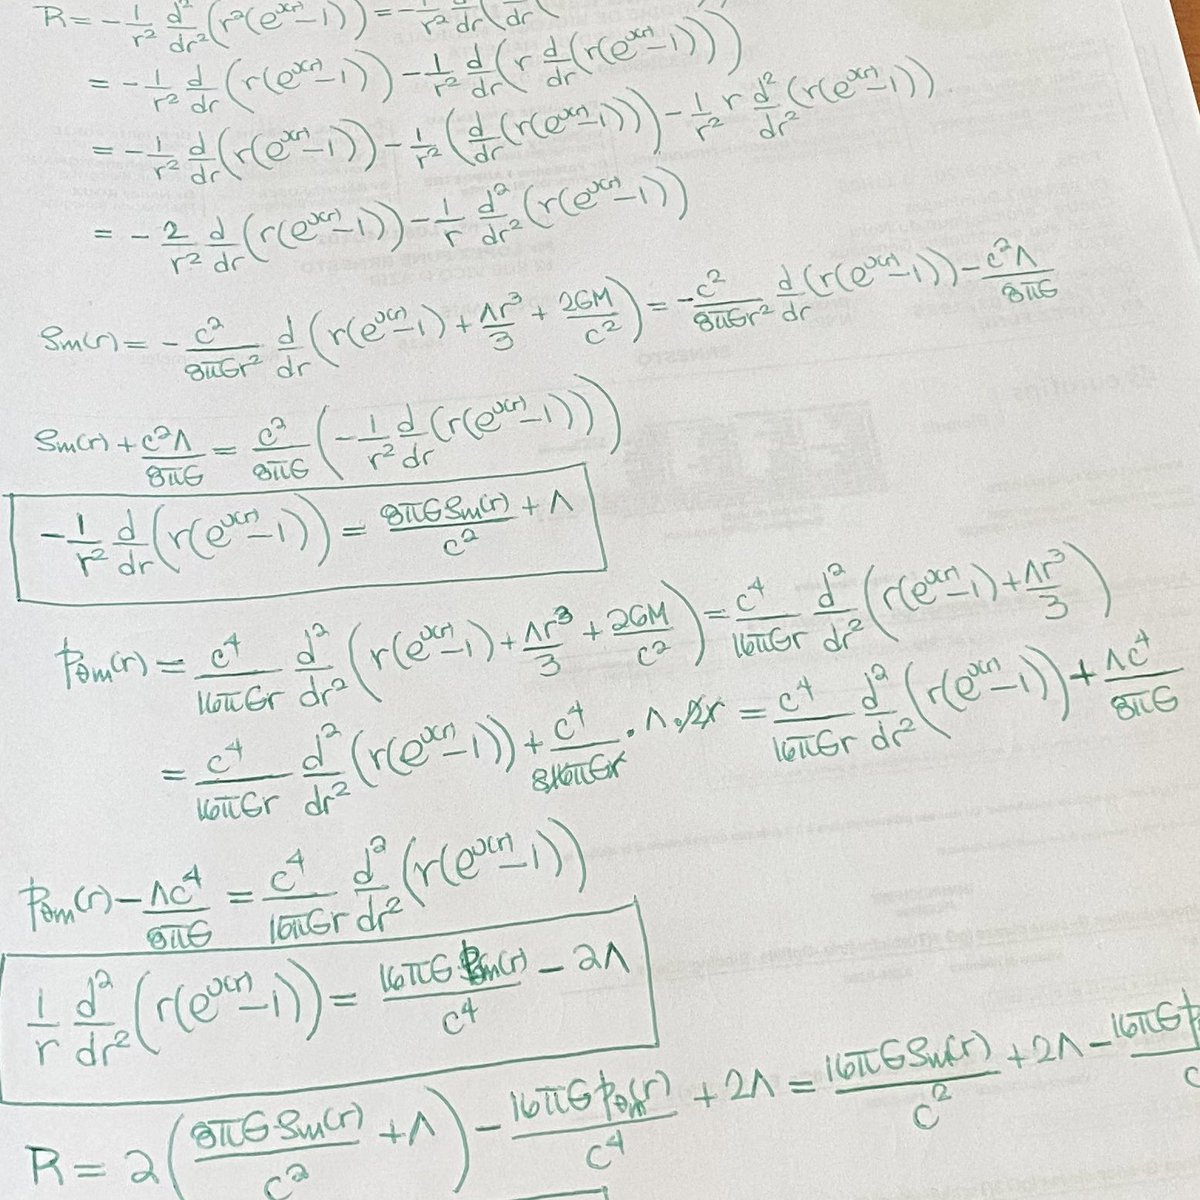 R = -1/r² d²/dr² (r²(e^ν(r) - 1)) = -1/r² d/dr (d/dr (
= -1/r² d/dr (r(e^ν(r) - 1)) - 1/r² d/dr (r d/dr (r(e^ν(r) - 1)))
= -1/r² d/dr (r(e^ν(r) - 1)) - 1/r² (d/dr (r(e^ν(r) - 1))) - 1/r² r d²/dr² (r(e^ν(r) - 1))
= -2/r² d/dr (r(e^ν(r) - 1)) - 1/r d²/dr² (r(e^ν(r) - 1))
ρm(r) = -c²/8πGr² d/dr (r(e^ν(r) - 1) + Λr³/3 + 2GM/c²) = -c²/8πGr² d/dr (r(e^ν(r) - 1)) - c²Λ/8πG
ρm(r) + c²Λ/8πG = c²/8πG (-1/r² d/dr (r(e^ν(r) - 1)))
-1/r² d/dr (r(e^ν(r) - 1)) = 8πGρm(r)/c² + Λ
pθm(r) = c⁴/16πGr d²/dr² (r(e^ν(r) - 1) + Λr³/3 + 2GM/c²) = c⁴/16πGr d²/dr² (r(e^ν(r) - 1) + Λr³/3)
= c⁴/16πGr d²/dr² (r(e^ν(r) - 1)) + c⁴/8 16πGr · Λ · 2r = c⁴/16πGr d²/dr² (r(e^ν(r) - 1)) + Λc⁴/8πG
pθm(r) - Λc⁴/8πG = c⁴/16πGr d²/dr² (r(e^ν(r) - 1))
1/r d²/dr² (r(e^ν(r) - 1)) = 16πG pθm(r)/c⁴ - 2Λ
R = 2(8πGρm(r)/c² + Λ) - 16πG pθm(r)/c⁴ + 2Λ = 16πGρm(r)/c² + 2Λ - 16πG p